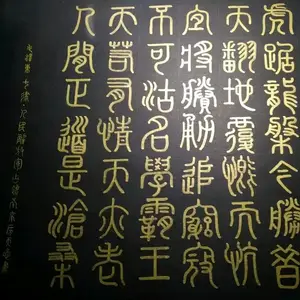 虎踞龍盤今勝昔
天翻地覆慨而忼
宜將賸勇追窮寇
不可沽名學霸王
天若有情天亦老
人間正道是滄桑
毛澤東七律人民解放軍占領南京